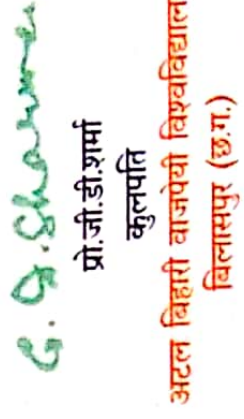 G. D. Sharma
प्रो.जी.डी.शर्मा
कुलपति
अटल बिहारी वाजपेयी विश्वविद्याल
बिलासपुर (छ.ग.)